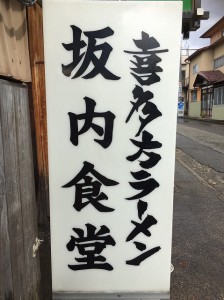 喜多方ラーメン
坂内食堂